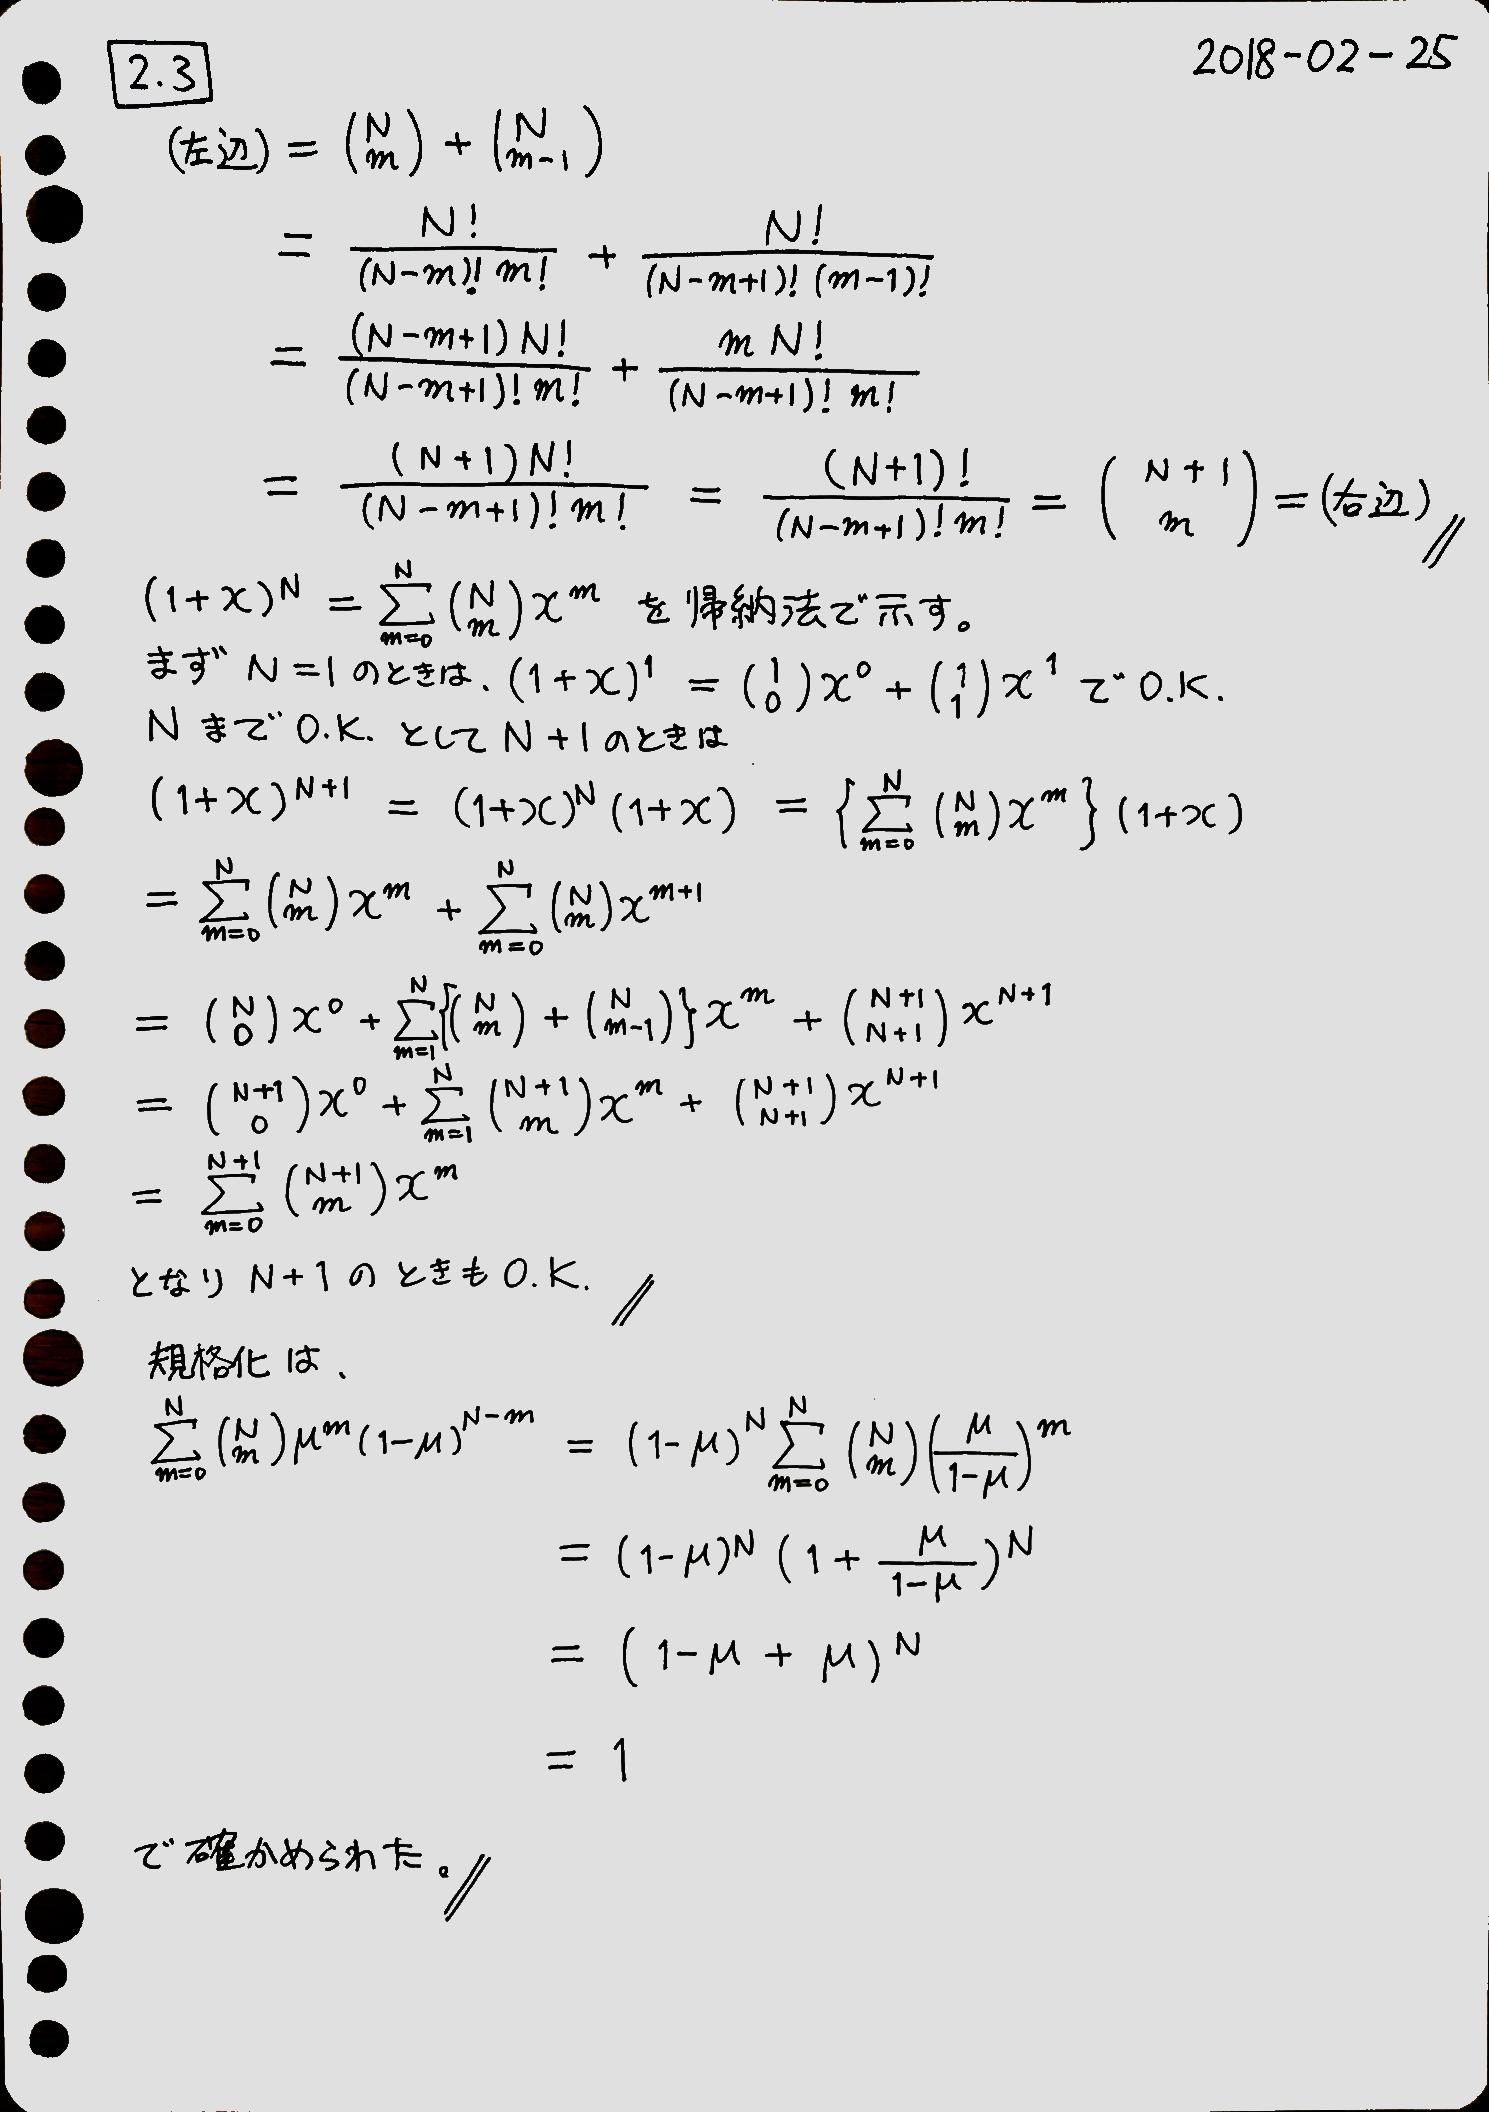 2.3 2018-02-25
(左辺) = \binom{N}{m} + \binom{N}{m-1}
= \frac{N!}{(N-m)! m!} + \frac{N!}{(N-m+1)! (m-1)!}
= \frac{(N-m+1) N!}{(N-m+1)! m!} + \frac{m N!}{(N-m+1)! m!}
= \frac{(N+1) N!}{(N-m+1)! m!} = \frac{(N+1)!}{(N-m+1)! m!} = \binom{N+1}{m} = (右辺) //
(1+x)^N = \sum_{m=0}^{N} \binom{N}{m} x^m を帰納法で示す。
まず N=1 のときは、(1+x)^1 = \binom{1}{0} x^0 + \binom{1}{1} x^1 で O.K.
N まで O.K. として N+1 のときは
(1+x)^{N+1} = (1+x)^N (1+x) = \left\{ \sum_{m=0}^{N} \binom{N}{m} x^m \right\} (1+x)
= \sum_{m=0}^{N} \binom{N}{m} x^m + \sum_{m=0}^{N} \binom{N}{m} x^{m+1}
= \binom{N}{0} x^0 + \sum_{m=1}^{N} \left\{ \binom{N}{m} + \binom{N}{m-1} \right\} x^m + \binom{N+1}{N+1} x^{N+1}
= \binom{N+1}{0} x^0 + \sum_{m=1}^{N} \binom{N+1}{m} x^m + \binom{N+1}{N+1} x^{N+1}
= \sum_{m=0}^{N+1} \binom{N+1}{m} x^m
となり N+1 のときも O.K. //
規格化は、
\sum_{m=0}^{N} \binom{N}{m} μ^m (1-μ)^{N-m} = (1-μ)^N \sum_{m=0}^{N} \binom{N}{m} \left( \frac{μ}{1-μ} \right)^m
= (1-μ)^N (1 + \frac{μ}{1-μ})^N
= (1-μ + μ)^N
= 1
で確かめられた。//